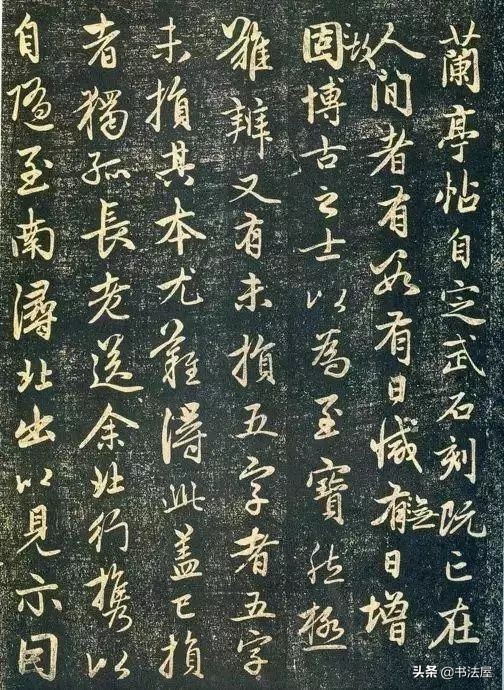 蘭亭帖自定武石刻既亡在
人間者有數有日減有無日增
固故博古之士以為至寶然極
難辨又有未損五字者五字
未損其本尤難得此蓋已損
者獨孤長老送余北行攜以
自隨至南潯北出以見示因
头条 @书法屋